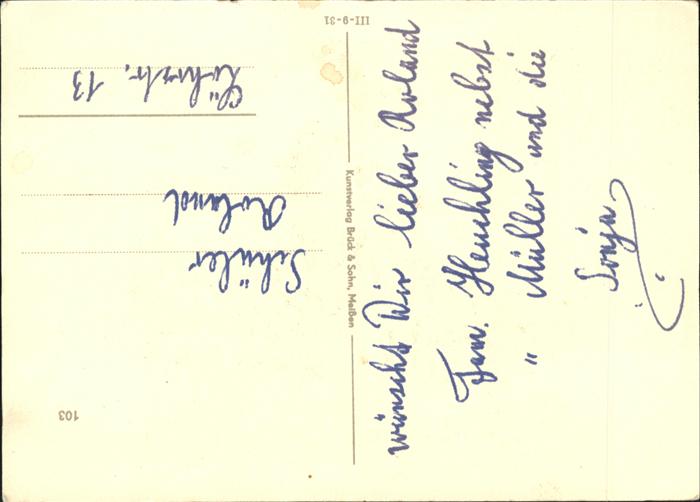 wünscht Dir lieber Roland
Fam. Heuchling nebst
" Müller und die
Sonja.
Kunstverlag Brück & Sohn, Meißen
103
Schüler
Roland
13
III-9-31